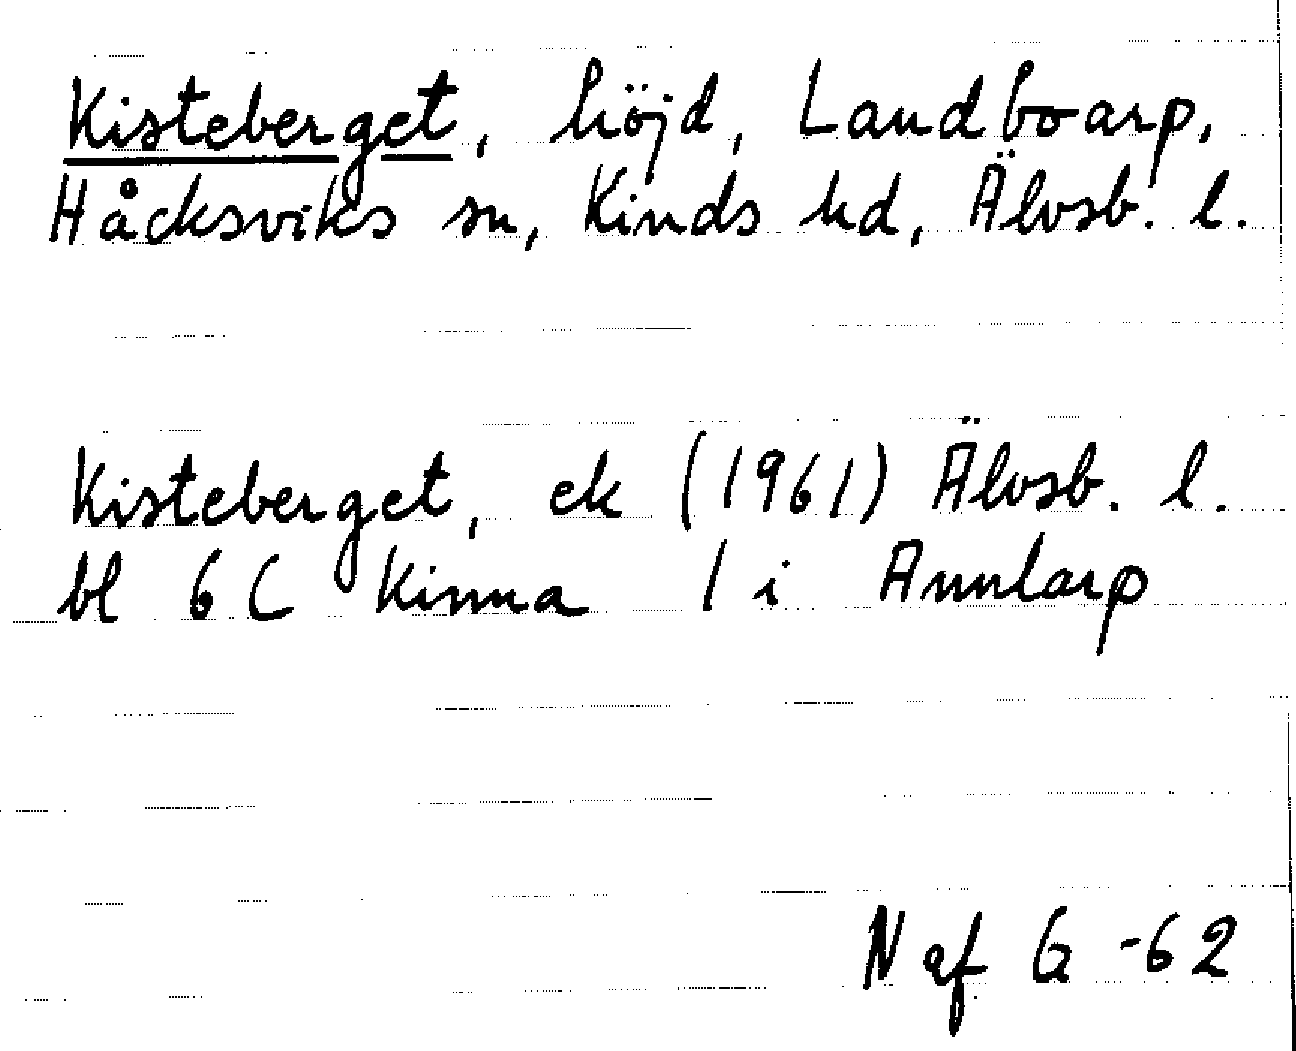 Kisteberget, höjd, Landboarp,
Håcksviks sn, Kinds hd, Älvsb. l.
Kisteberget, ek (1961) Älvsb. l.
bl 6 C Kinna 1 i Annlarp
N af G -62